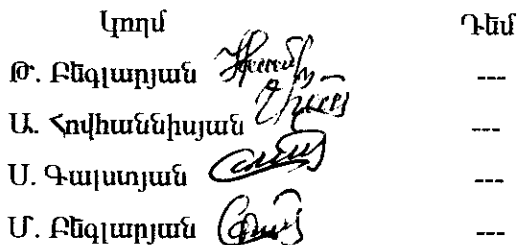 կողմ Դեմ
Թ. Բեգլարյան ---
Ա. Հովհաննիսյան ---
Ս. Գալստյան ---
Մ. Բեգլարյան ---